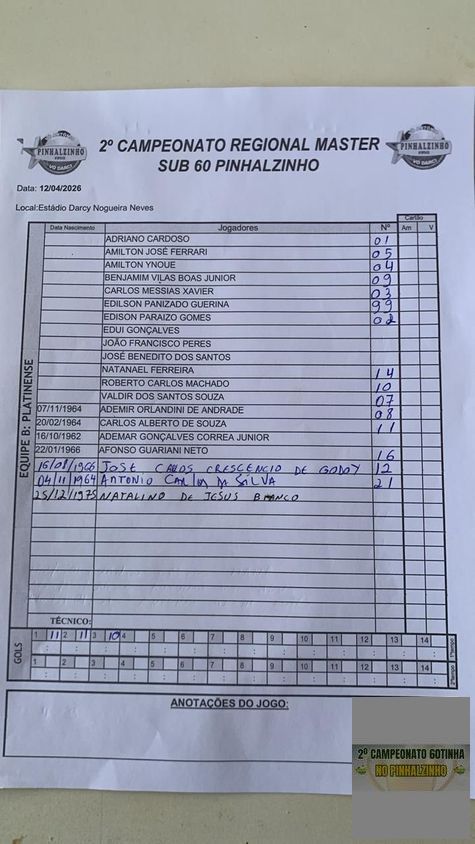 PINHALZINHO
VO DARCY
2º CAMPEONATO REGIONAL MASTER
SUB 60 PINHALZINHO
PINHALZINHO
VO DARCY
Data: 12/04/2026
Local:Estádio Darcy Nogueira Neves
Cartão
Data Nascimento Jogadores Nº Am V
EQUIPE B: PLATINENSE
ADRIANO CARDOSO 01
AMILTON JOSÉ FERRARI 05
AMILTON YNOUE 04
BENJAMIM VILAS BOAS JUNIOR 09
CARLOS MESSIAS XAVIER 03
EDILSON PANIZADO GUERINA 99
EDISON PARAIZO GOMES 02
EDUI GONÇALVES
JOÃO FRANCISCO PERES
JOSÉ BENEDITO DOS SANTOS
NATANAEL FERREIRA 14
ROBERTO CARLOS MACHADO 10
VALDIR DOS SANTOS SOUZA 07
07/11/1964 ADEMIR ORLANDINI DE ANDRADE 08
20/02/1964 CARLOS ALBERTO DE SOUZA 11
16/10/1962 ADEMAR GONÇALVES CORREA JUNIOR
22/01/1966 AFONSO GUARIANI NETO 16
16/08/1966 JOSE CARLOS CRESCENCIO DE GODOY 12
04/11/1964 ANTONIO CARLOS DA SILVA 21
25/12/1975 NATALINO DE JESUS BRANCO
TÉCNICO:
GOLS
1 11 2 11 3 10 4 5 6 7 8 9 10 11 12 13 14 1ºTempo
1 2 3 4 5 6 7 8 9 10 11 12 13 14 2ºTempo
ANOTAÇÕES DO JOGO:
2º CAMPEONATO GOTINHA
NO PINHALZINHO